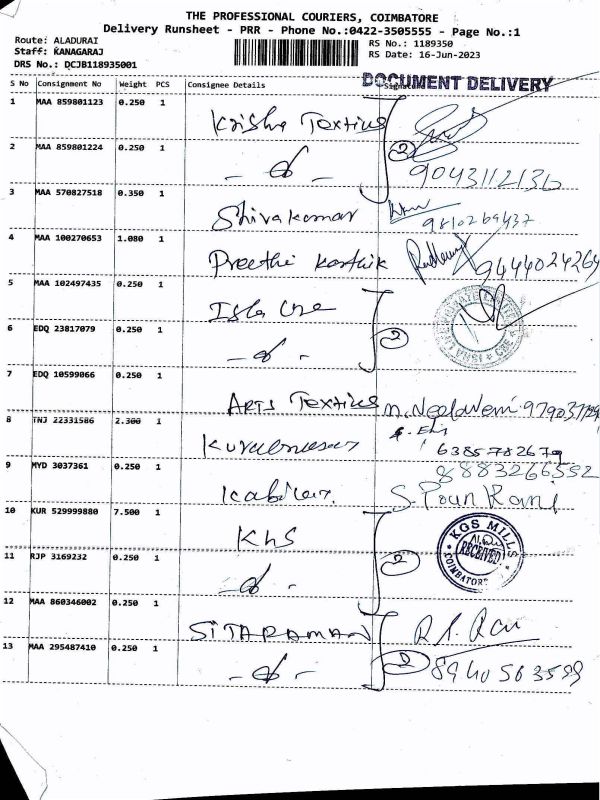 THE PROFESSIONAL COURIERS, COIMBATORE
Delivery Runsheet - PRR - Phone No.:0422-3505555 - Page No.:1
Route: ALADURAI RS No.: 1189350
Staff: KANAGARAJ RS Date: 16-Jun-2023
DRS No.: DCJB118935001
DOCUMENT DELIVERY
S No Consignment No Weight PCS Consignee Details Signature
1 MAA 859801123 0.250 1 Krisha Textius
2 MAA 859801224 0.250 1 2 9043112136
3 MAA 570827518 0.350 1 Shivakumar 9810269437
4 MAA 100270653 1.080 1 Preethi karthik 9444024264
5 MAA 102497435 0.250 1
6 EDQ 23817079 0.250 1 2
7 EDQ 10599066 0.250 1 Arts Textius
8 TNJ 22331586 2.300 1 6385782679
9 MYD 3037361 0.250 1 8883266552
S. Poun Rani
10 KUR 529999880 7.500 1 KhS
KGS MILLS
RECEIVED
COIMBATORE
11 RJP 3169232 0.250 1 2
12 MAA 860346002 0.250 1 SITARAMAN
13 MAA 295487410 0.250 1 2 8940563599